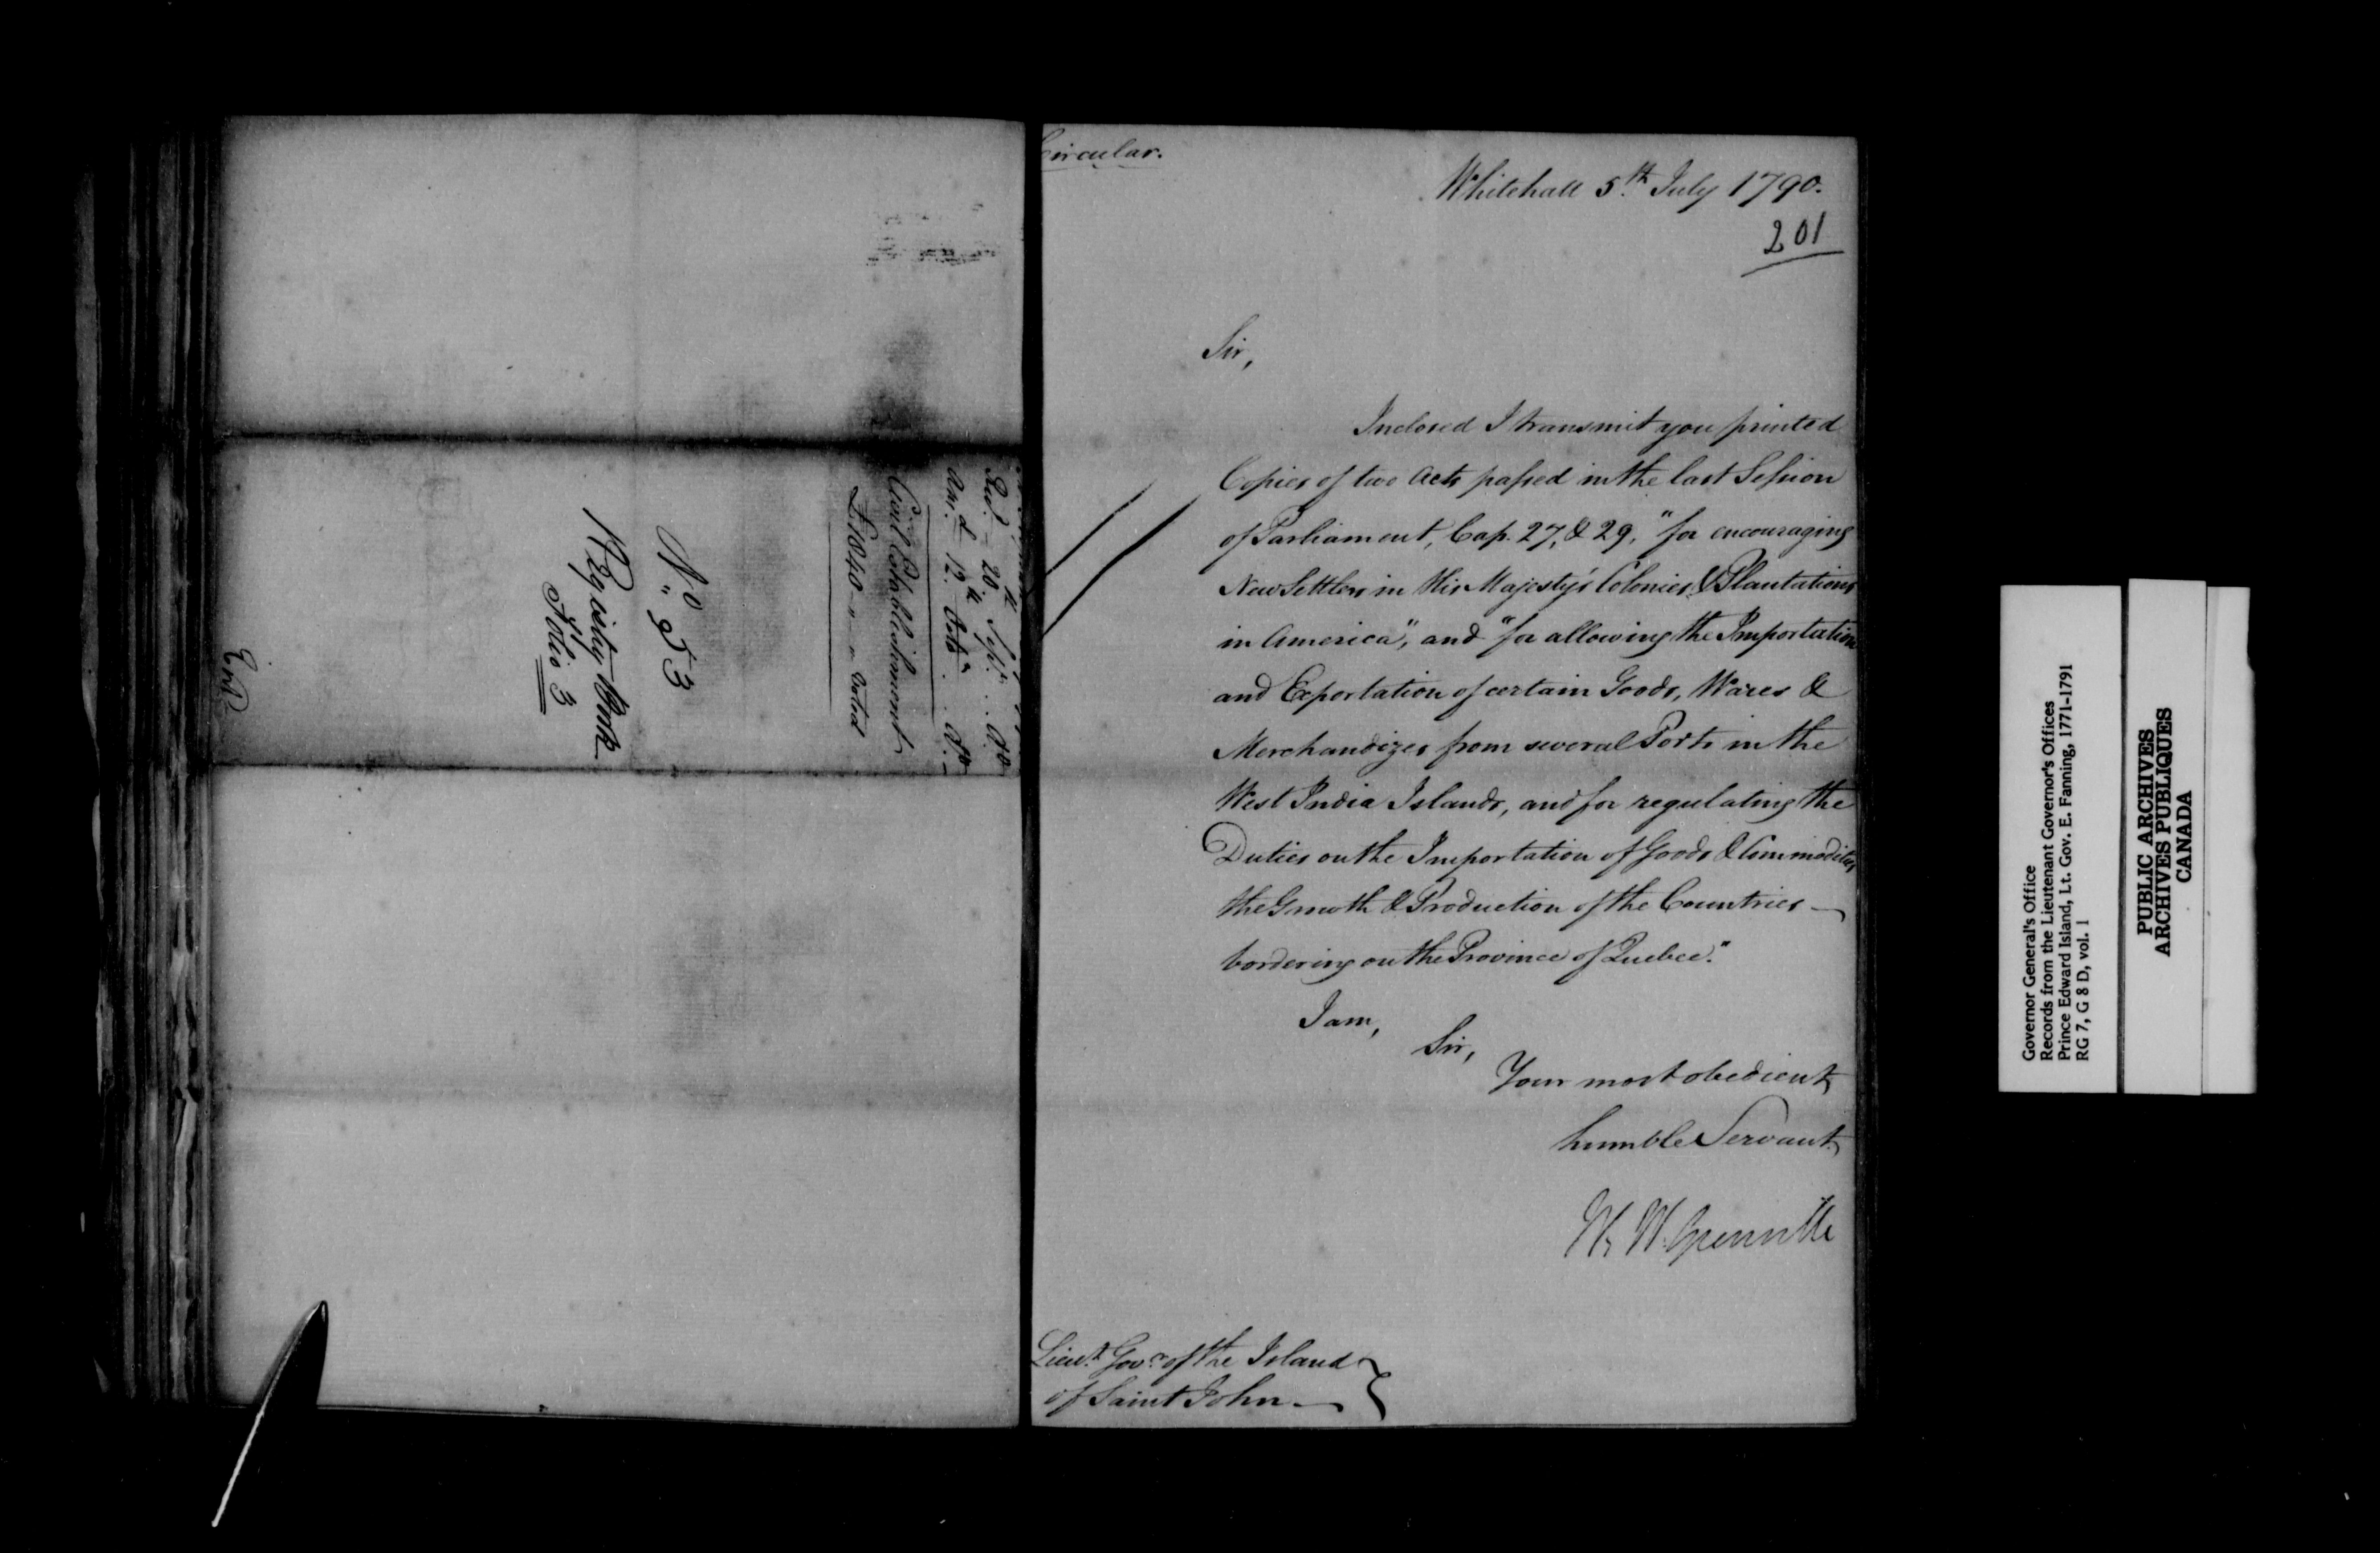 Recd. 20th Sept. . . Do
Ansd. 12th Octr. . . Do
Civil Establishment
£1840 - " - " Voted
No
" 53
Registy Book
Folio 3
Entd
Circular.
Whitehall 5th July 1790.
201
Sir,
Inclosed I transmit you printed
Copies of two Acts passed in the last Session
of Parliament, Cap. 27, & 29, "for encouraging
New Settlers in His Majesty's Colonies & Plantations
in America", and "for allowing the Importation
and Exportation of certain Goods, Wares &
Merchandizes from several Ports in the
West India Islands, and for regulating the
Duties on the Importation of Goods & Commodities
the Growth & Production of the Countries
bordering on the Province of Quebec."
I am,
Sir,
Your most obedient
humble Servant
W. W. Grenville
Lieut. Govr. of the Island
of Saint John
Governor General's Office
Records from the Lieutenant Governor's Offices
Prince Edward Island, Lt. Gov. E. Fanning, 1771-1791
RG 7, G 8 D, vol. 1
PUBLIC ARCHIVES
ARCHIVES PUBLIQUES
CANADA